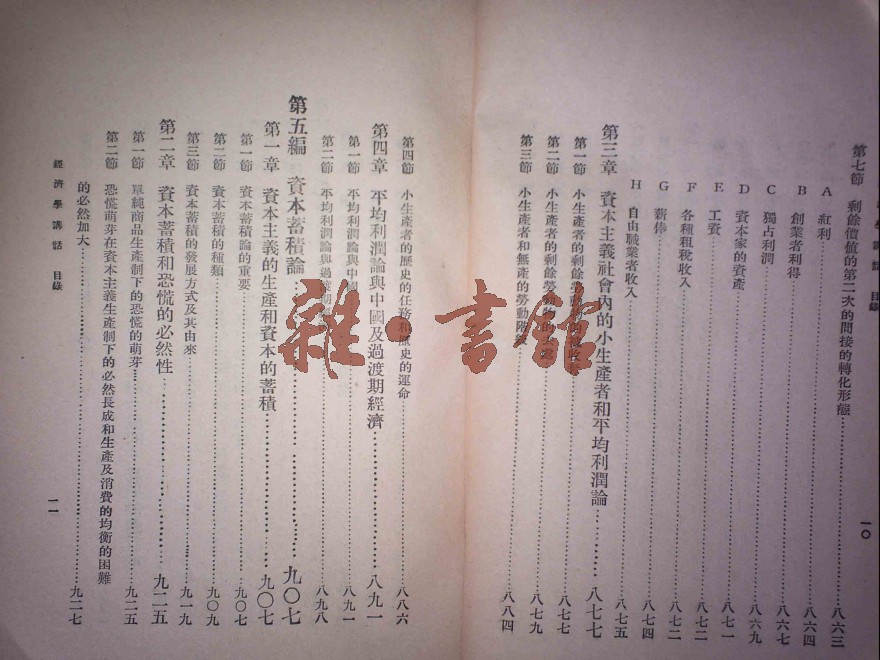 經濟學講話 目錄
第七節 剩餘價值的第二次的間接的轉化形態……八六三
A 紅利……八六三
B 創業者利得……八六四
C 獨占利潤……八六七
D 資本家的資產……八六九
E 工資……八七一
F 各種租稅收入……八七二
G 薪俸……八七四
H 自由職業者收入……八七五
第三章 資本主義社會內的小生產者和平均利潤論……八七七
第一節 小生產者的剩餘勞動物的……八七七
第二節 小生產者的剩餘勞動物的……八七九
第三節 小生產者和無產的勞動階……八八四
一〇
第四節 小生產者的歷史的任務和歷史的運命……八八六
第四章 平均利潤論與中國及過渡期經濟……八九一
第一節 平均利潤論與中國……八九一
第二節 平均利潤論與過渡期……八九八
第五編 資本蓄積論……九〇七
第一章 資本主義的生產和資本的蓄積……九〇七
第一節 資本蓄積論的重要……九〇七
第二節 資本蓄積的種類……九〇九
第三節 資本蓄積的發展方式及其由來……九一九
第二章 資本蓄積和恐慌的必然性……九二五
第一節 單純商品生產制下的恐慌的萌芽……九二五
第二節 恐慌萌芽在資本主義生產制下的必然長成和生產及消費的均衡的困難
的必然加大……九二七
經濟學講話 目錄
一一
雜·書館